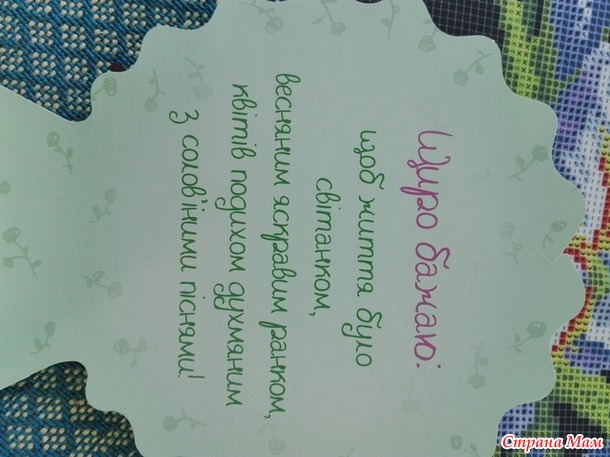 Щиро бажаю:
щоб життя було
світанком,
весняним яскравим ранком,
квітів подихом духмяним
з солов'їними піснями!
Страна Мам